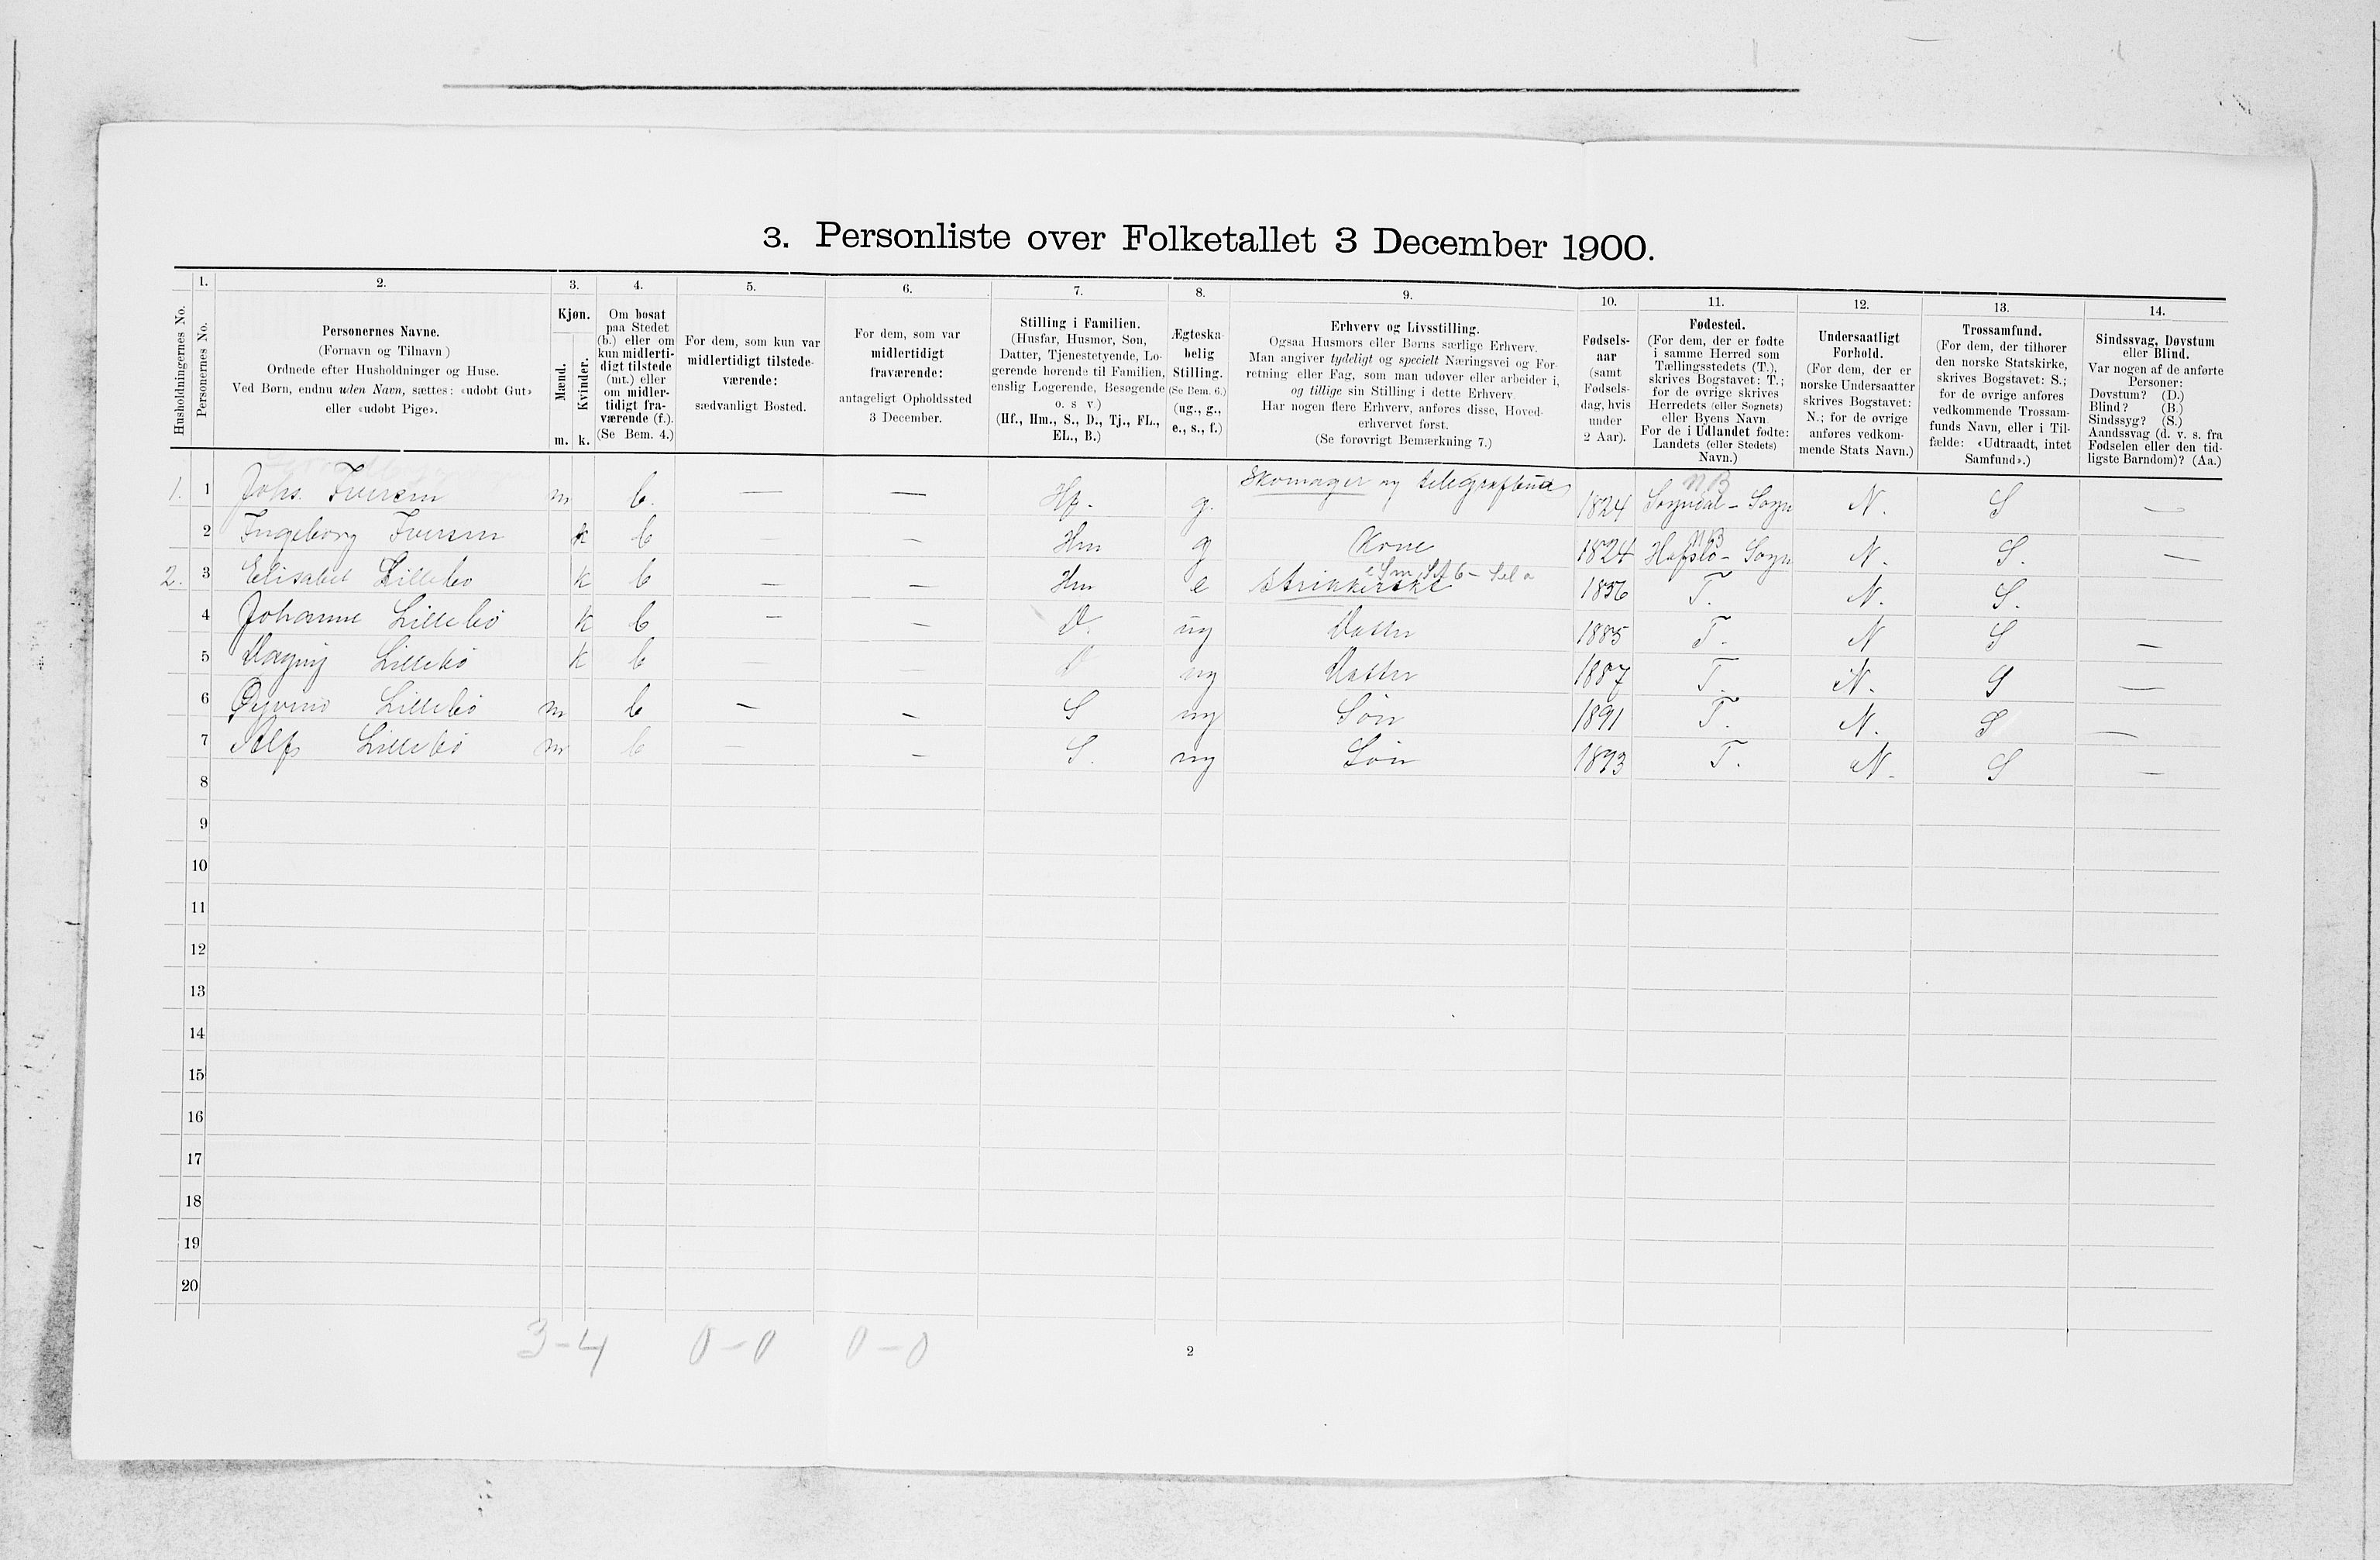 3. Personliste over Folketallet 3 December 1900.
Husholdningernes No.
1.
Personernes No.
2.
Personernes Navne.
(Fornavn og Tilnavn)
Ordnede efter Husholdninger og Huse.
Ved Børn, endnu uden Navn, sættes: «udøbt Gut»
eller «udøbt Pige».
3.
Kjøn.
Mænd.
Kvinder.
m. k.
4.
Om bosat
paa Stedet
(b.) eller om
kun midlerti-
digt tilstede
(mt.) eller
om midler-
tidigt fra-
værende (f.).
(Se Bem. 4.)
5.
For dem, som kun var
midlertidigt tilstede-
værende:
sædvanligt Bosted.
6.
For dem, som var
midlertidigt
fraværende:
antageligt Opholdssted
3 December.
7.
Stilling i Familien.
(Husfar, Husmor, Søn,
Datter, Tjenestetyende, Lo-
gerende hørende til Familien,
enslig Logerende, Besøgende
o. s v)
(Hf., Hm., S., D., Tj., FL.,
EL., B.)
8.
Ægteska-
belig
Stilling.
(Se Bem. 6.)
(ug., g.,
e., s., f.)
9.
Erhverv og Livsstilling.
Ogsaa Husmors eller Børns særlige Erhverv.
Man angiver tydeligt og specielt Næringsvei og For-
retning eller Fag, som man udøver eller arbeider i,
og tillige sin Stilling i dette Erhverv.
Har nogen flere Erhverv, anføres disse, Hoved-
erhvervet først.
(Se forøvrigt Bemærkning 7.)
10.
Fødsels-
aar
(samt
Fødsels-
dag, hvis
under
2 Aar).
11.
Fødested.
(For dem, der er fødte
i samme Herred som
Tællingsstedets (T.),
skrives Bogstavet: T.;
for de øvrige skrives
Herredets (eller Sognets)
eller Byens Navn
For de i Udlandet fødte:
Landets (eller Stedets)
Navn.)
12.
Undersaatligt
Forhold.
(For dem, der er
norske Undersaatter
skrives Bogstavet:
N.; for de øvrige
anføres vedkom-
mende Stats Navn.)
13.
Trossamfund.
(For dem, der tilhører
den norske Statskirke,
skrives Bogstavet: S.;
for de øvrige anføres
vedkommende Trossam-
funds Navn, eller i Til-
fælde: «Udtraadt, intet
Samfund».)
14.
Sindssvag, Døvstum
eller Blind.
Var nogen af de anførte
Personer:
Døvstum? (D.)
Blind? (B.)
Sindssyg? (S.)
Aandssvag (d. v. s. fra
Fødselen eller den tid-
ligste Barndom)? (Aa.)
1. 1 Johs. Iversen m b. — — Hf. g. Skomager og telegrafbud 1824 NB Sogndal - Sogn N. S —
2 Ingeborg Iversen k b — — Hm g Kone 1824 NB Hafslo - Sogn N. S. —
2. 3 Elisabet Lillebo k b — — Hm e Strikkerske 1856 T. N. S.
4 Johanne Lillebö k b — — D. ug Datter 1885 T. N S —
5 Dagny Lillebö k b — — D ug Datter 1887 T. N. S —
6 Øyvind Lillebö m b — — S ug Sön 1891 T. N. S —
7 Alf Lillebö m b — — S. ug Sön 1893 T. N. S —
8
9
10
11
12
13
14
15
16
17
18
19
20
3-4 0-0 0-0
2